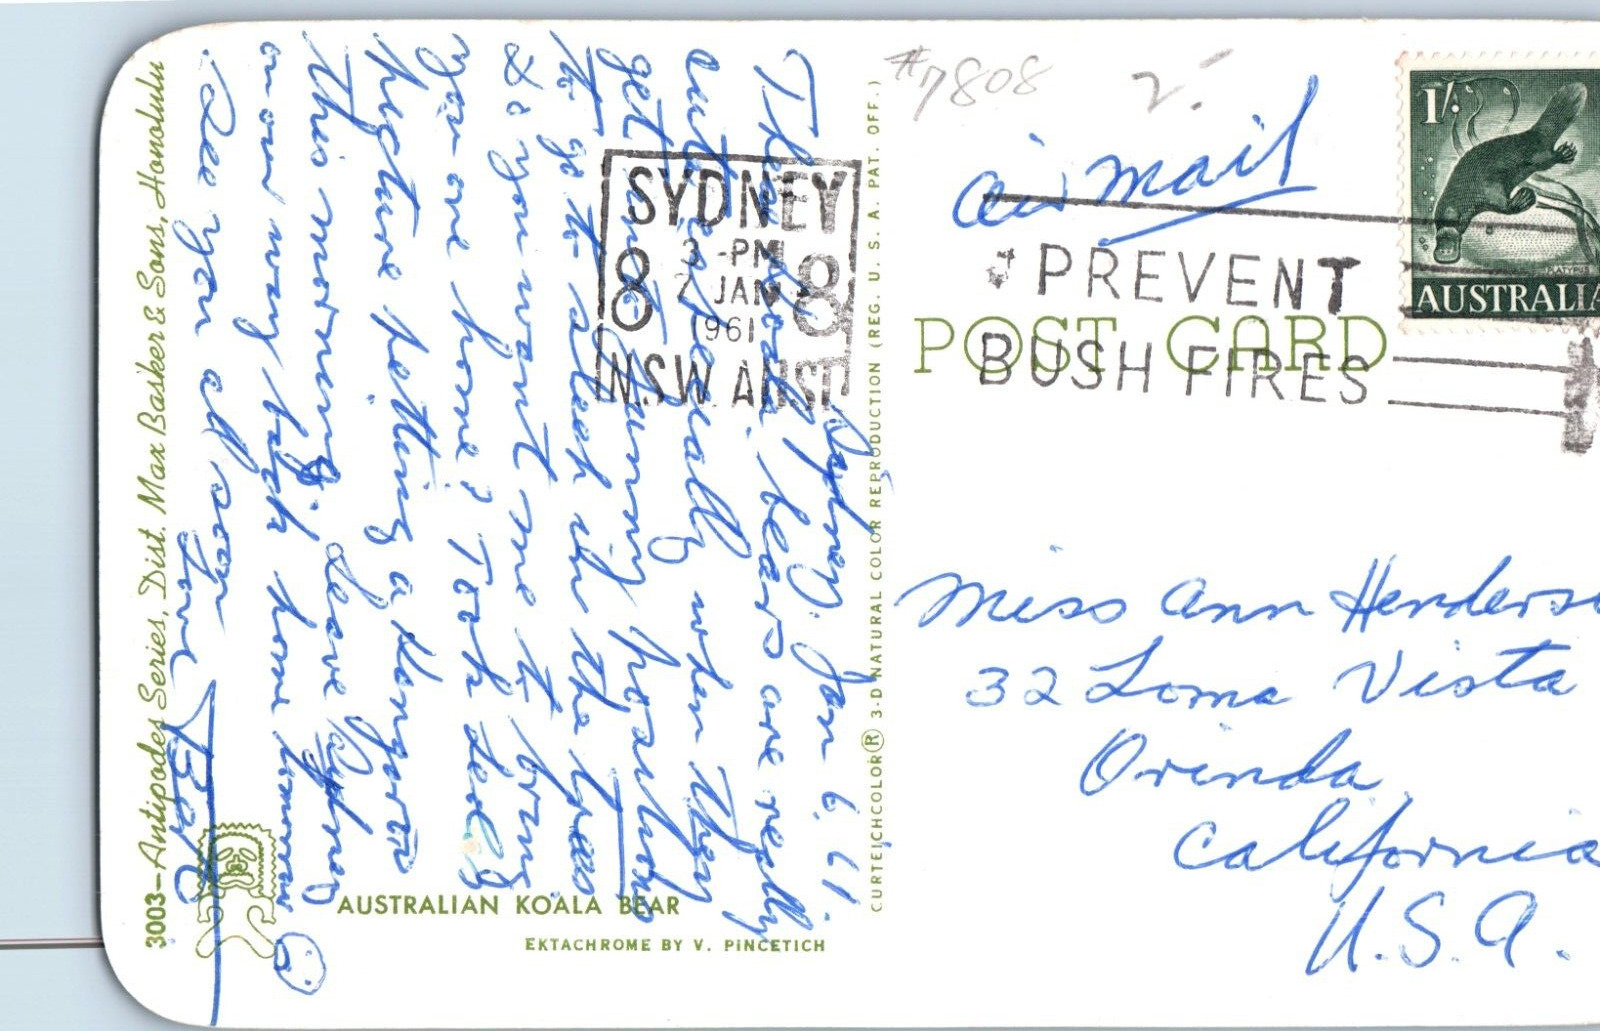 Sydney. Jan 6. 61.
These Koala bears are really
cute especially when they
get into funny positions
to go to sleep in the trees
Do you want me to bring
you one home? Took Seolly
picture petting a Kangaroo
this morning. Leave Sydney
on our way back home tomorrow
See you all soon
Love
#7808
air mail
1/-
PLATYPUS
AUSTRALIA
SYDNEY
3 -PM
7 JAN
1961
8 8
N.S.W. AUST
PREVENT
BUSH FIRES
POST CARD
Miss Ann Henderso
32 Loma Vista
Orinda
California
U.S.A.
3003—Antipodes Series, Dist. Max Basker & Sons, Honolulu
AUSTRALIAN KOALA BEAR
EKTACHROME BY V. PINCETICH
CURTEICHCOLOR® 3-D NATURAL COLOR REPRODUCTION (REG. U. S. A. PAT. OFF.)